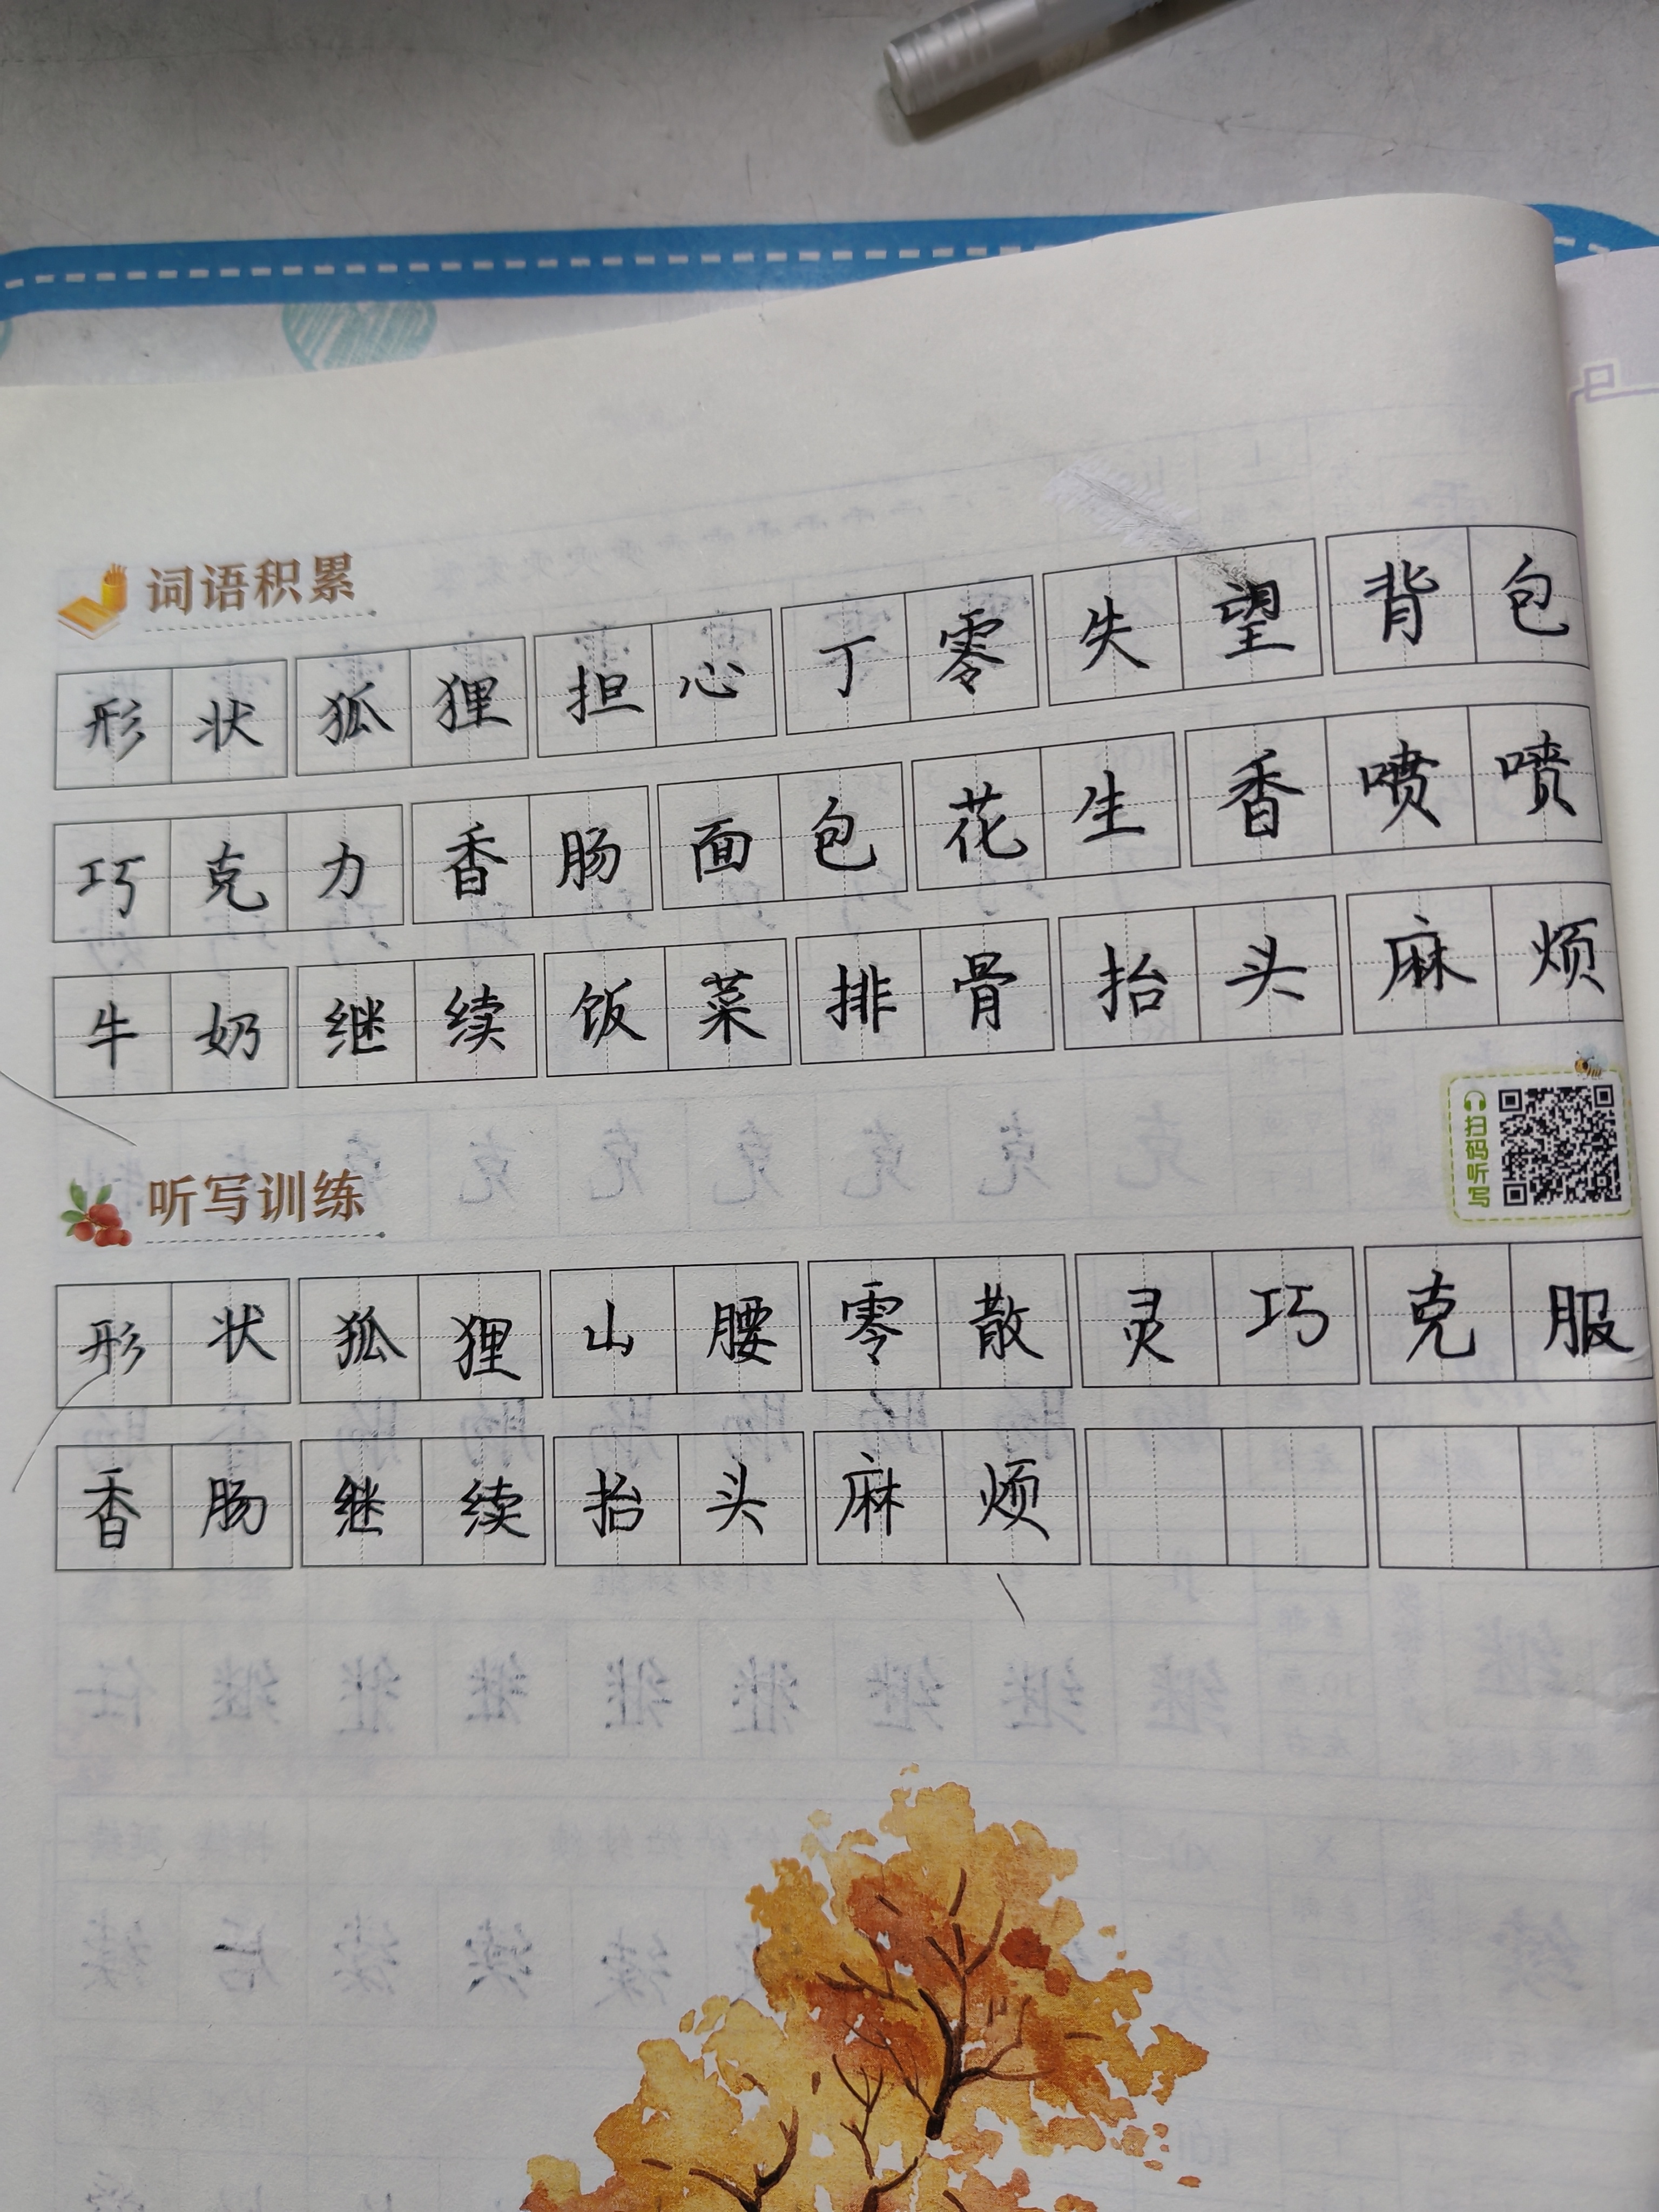 词语积累
形状 狐狸 担心 丁零 失望 背包
巧克力 香肠 面包 花生 香喷喷
牛奶 继续 饭菜 排骨 抬头 麻烦
扫码听写
听写训练
形状 狐狸 山腰 零散 灵巧 克服
香肠 继续 抬头 麻烦